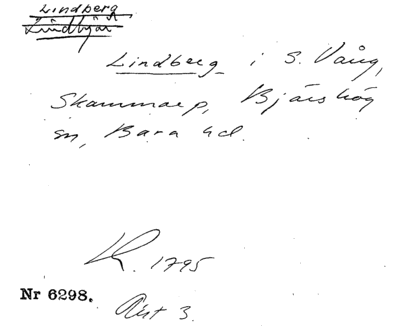 Lindberg
Lindbjär
Lindberg i S. Vång,
Skammarp, Bjärshög
sn, Bara hd.
LK. 1795
Nr 6298.
Akt 3.